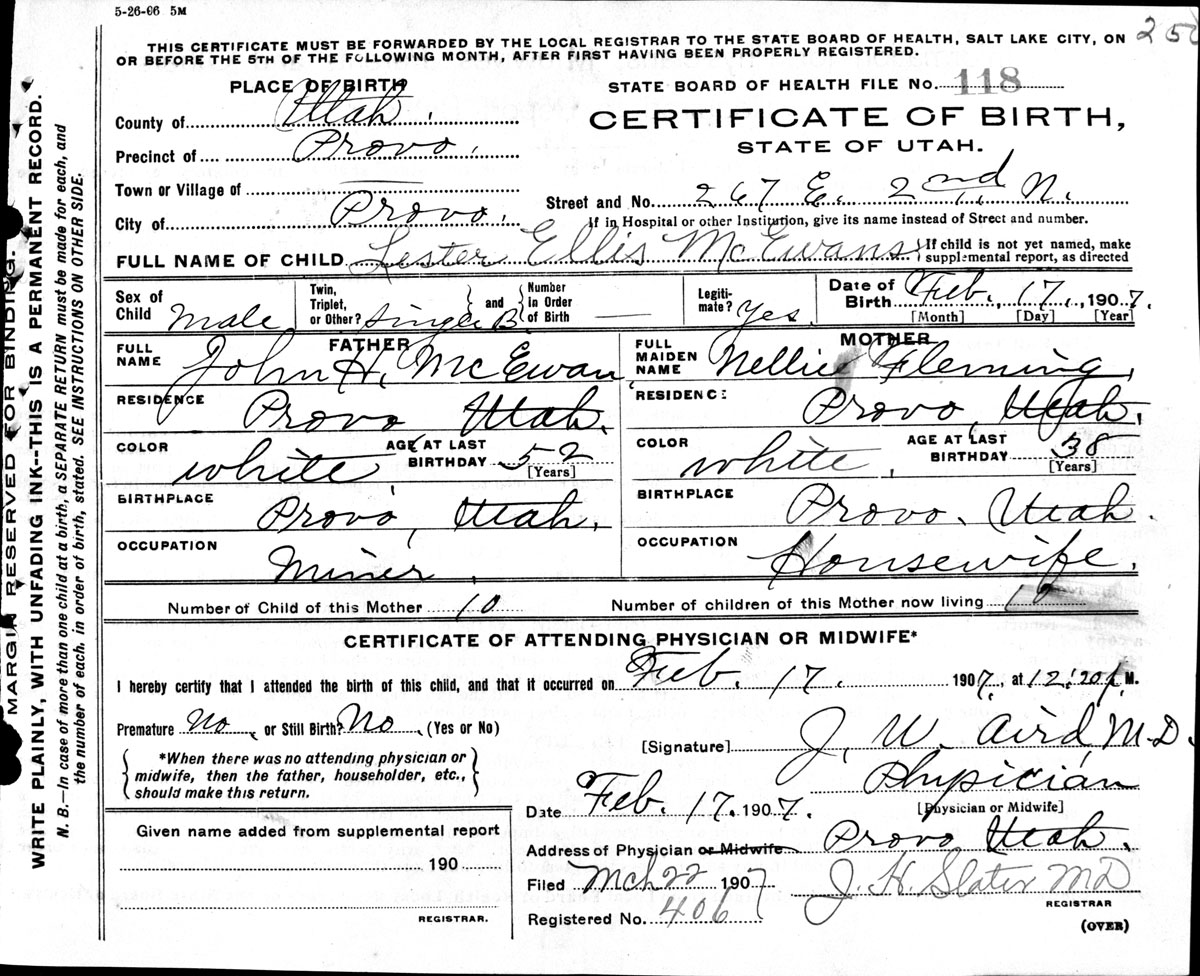 5-26-06 5M
250
THIS CERTIFICATE MUST BE FORWARDED BY THE LOCAL REGISTRAR TO THE STATE BOARD OF HEALTH, SALT LAKE CITY, ON
OR BEFORE THE 5TH OF THE FOLLOWING MONTH, AFTER FIRST HAVING BEEN PROPERLY REGISTERED.
MARGIN RESERVED FOR BINDING.
WRITE PLAINLY, WITH UNFADING INK--THIS IS A PERMANENT RECORD.
N. B.—In case of more than one child at a birth, a SEPARATE RETURN must be made for each, and
the number of each, in order of birth, stated. SEE INSTRUCTIONS ON OTHER SIDE.
PLACE OF BIRTH
County of Utah.
Precinct of Provo.
Town or Village of —
City of Provo.
STATE BOARD OF HEALTH FILE No. 118
CERTIFICATE OF BIRTH,
STATE OF UTAH.
Street and No. 267 E. 2nd N.
If in Hospital or other Institution, give its name instead of Street and number.
FULL NAME OF CHILD Lester Ellis McEwans
If child is not yet named, make
supplemental report, as directed
Sex of Child Male
Twin, Triplet, or Other? Single B. and Number in Order of Birth —
Legitimate? Yes.
Date of Birth Feb., 17, 1907.
[Month] [Day] [Year]
FATHER
FULL NAME John H. McEwan
RESIDENCE Provo Utah.
COLOR white AGE AT LAST BIRTHDAY 52
[Years]
BIRTHPLACE Provo, Utah.
OCCUPATION Miner.
MOTHER
FULL MAIDEN NAME Nellie Fleming.
RESIDENCE Provo, Utah.
COLOR white, AGE AT LAST BIRTHDAY 38
[Years]
BIRTHPLACE Provo. Utah.
OCCUPATION Housewife.
Number of Child of this Mother 10 Number of children of this Mother now living
CERTIFICATE OF ATTENDING PHYSICIAN OR MIDWIFE*
I hereby certify that I attended the birth of this child, and that it occurred on Feb. 17. 1907, at 12:20 M.
Premature No, or Still Birth? No, (Yes or No)
*When there was no attending physician or
midwife, then the father, householder, etc.,
should make this return.
[Signature] J. W. Aird M.D.
Physician
[Physician or Midwife]
Date Feb. 17. 1907.
Address of Physician or Midwife Provo Utah.
Filed Mch 22 1907 J. H. Slater MD
REGISTRAR
Registered No. 406
(OVER)
Given name added from supplemental report
190
REGISTRAR.